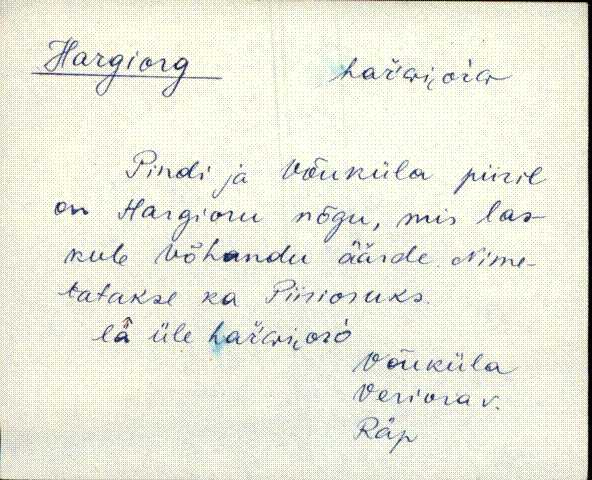 Hargiorg
Pindi ja Võuküla piiril
on Hargioru nõgu, mis las-
kub Võhandu äärde. Nime-
tatakse ka Piirioruks.
üle
Võuküla
Veriora v.
Räp